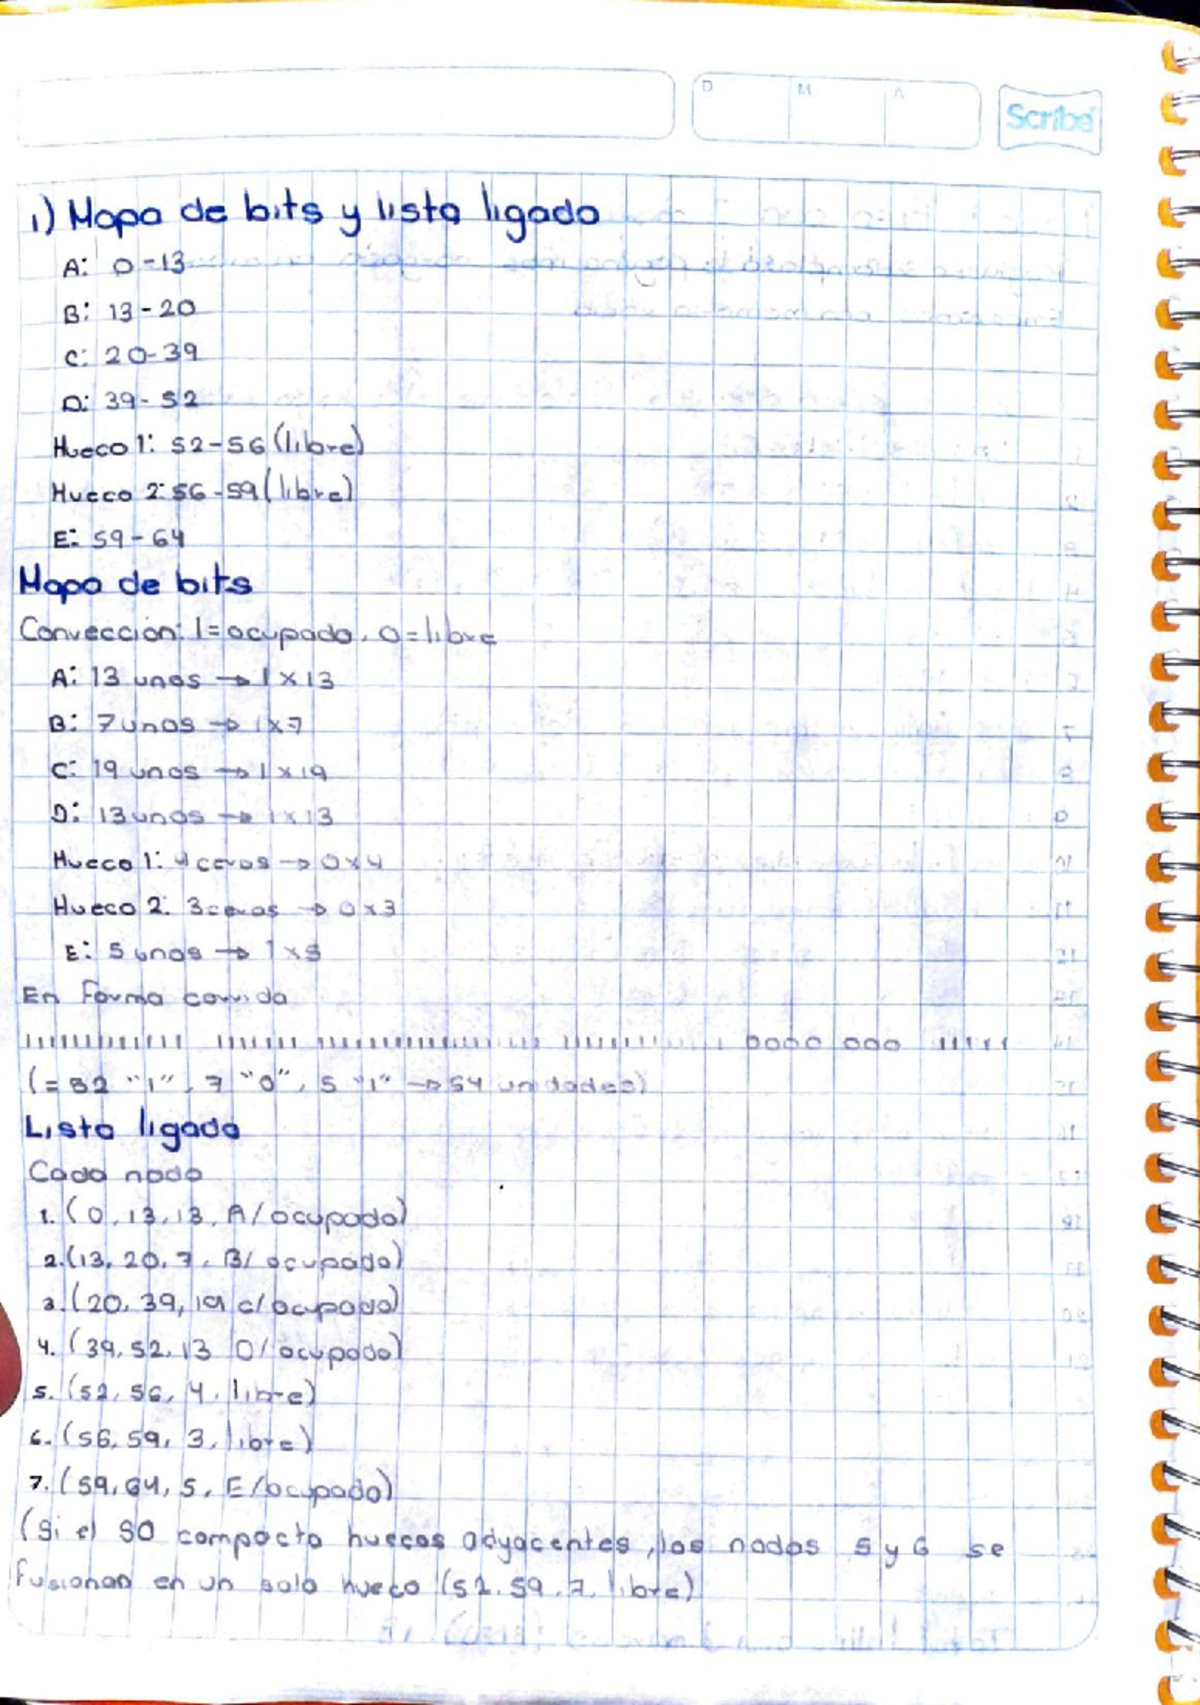 D M A
Scribe
1) Mapa de bits y lista ligada
A: 0-13
B: 13-20
C: 20-39
D: 39-52
Hueco 1: 52-56 (libre)
Hueco 2: 56-59 (libre)
E: 59-64
Mapa de bits
Convección: 1=ocupado, 0=libre
A: 13 unos → 1x13
B: 7 unos → 1x7
C: 19 unos → 1x19
D: 13 unos → 1x13
Hueco 1: 4 ceros → 0x4
Hueco 2: 3 ceros → 0x3
E: 5 unos → 1x5
En forma corrida
0000 000 11111
(= 52 "1", 7 "0", 5 "1" → 64 unidades)
Lista ligada
Cada nodo
1. (0, 13, 13, A/ocupado)
2. (13, 20, 7, B/ocupado)
3. (20, 39, 19 C/ocupado)
4. (39, 52, 13 D/ocupado)
5. (52, 56, 4, libre)
6. (56, 59, 3, libre)
7. (59, 64, 5, E/ocupado)
(Si el SO compacta huecos adyacentes, los nodos 5 y 6 se
fusionan en un solo hueco (52, 59, 7, libre)